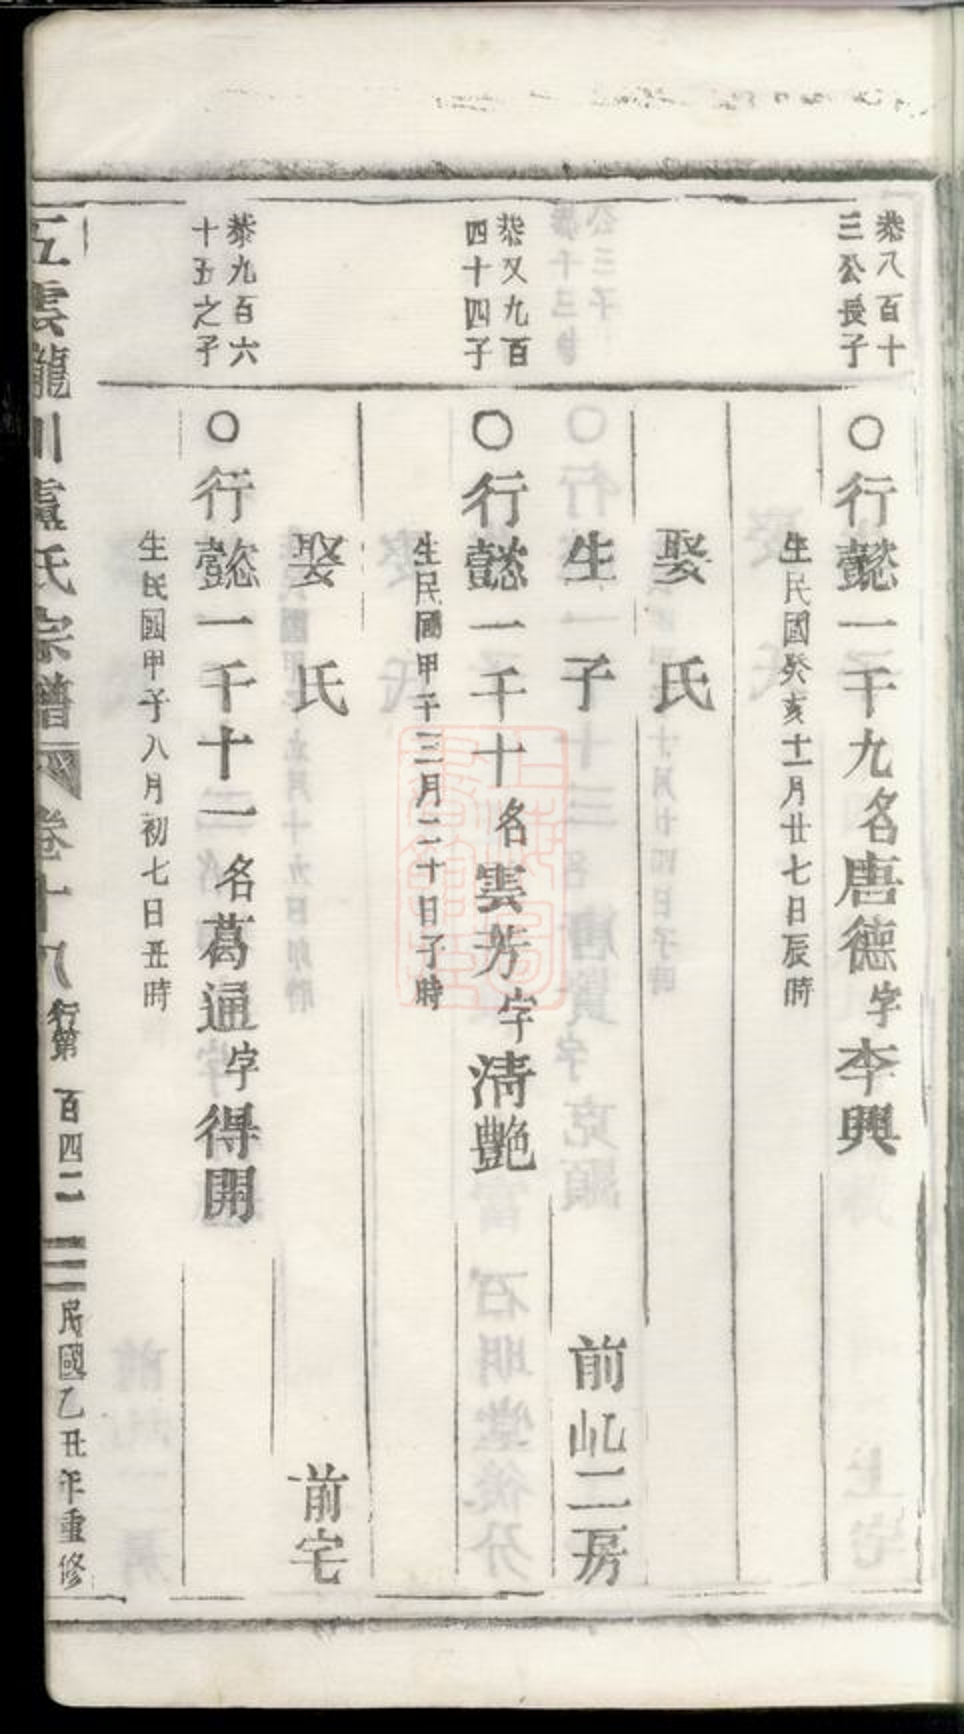 恭八百十
三公長子
○行懿一千九名唐德字李興
生民國癸亥十一月廿七日辰時
娶 氏
生子 前屺二房
恭又九百
四十四子
○行懿一千十名雲芳字清艷
生民國甲子三月二十日子時
娶 氏 前宅
恭九百六
十五之子
○行懿一千十一名葛通字得開
生民國甲子八月初七日丑時
五雲龍川盧氏宗譜 卷十八 行第 百四二 民國乙丑年重修